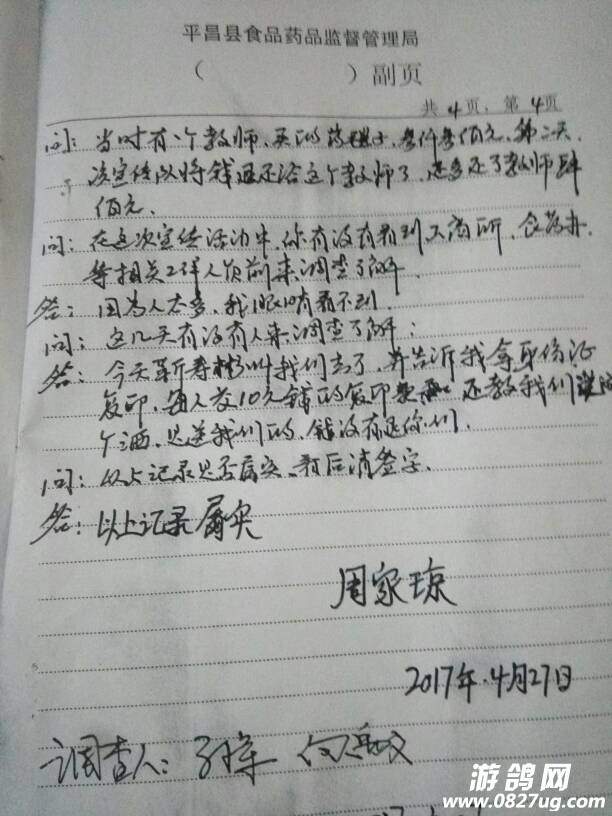 平昌县食品药品监督管理局
( )副页
共 4 页, 第 4 页
问: 当时有一个教师、买的药 叁仟叁佰元、第二天
次宣传以将钱退还给这个教师了, 还多还了教师肆
佰元、
问: 在这次宣传活动中, 你有没有看到工商所、食药办、
等相关工作人员前来调查了解
答: 因为人太多, 我眼睛看不到
问: 这几天有没有人来调查了解:
答: 今天 叫我们去了, 并告诉我拿身份证
复印, 每人发10元钱的复印费 还教我们说
个酒、是送我们的, 钱没有退你们.
问: 以上记录是否属实、看后请签字、
答: 以上记录属实
周家琼
2017年.4月27日
调查人:
游鸽网
www.0827ug.com